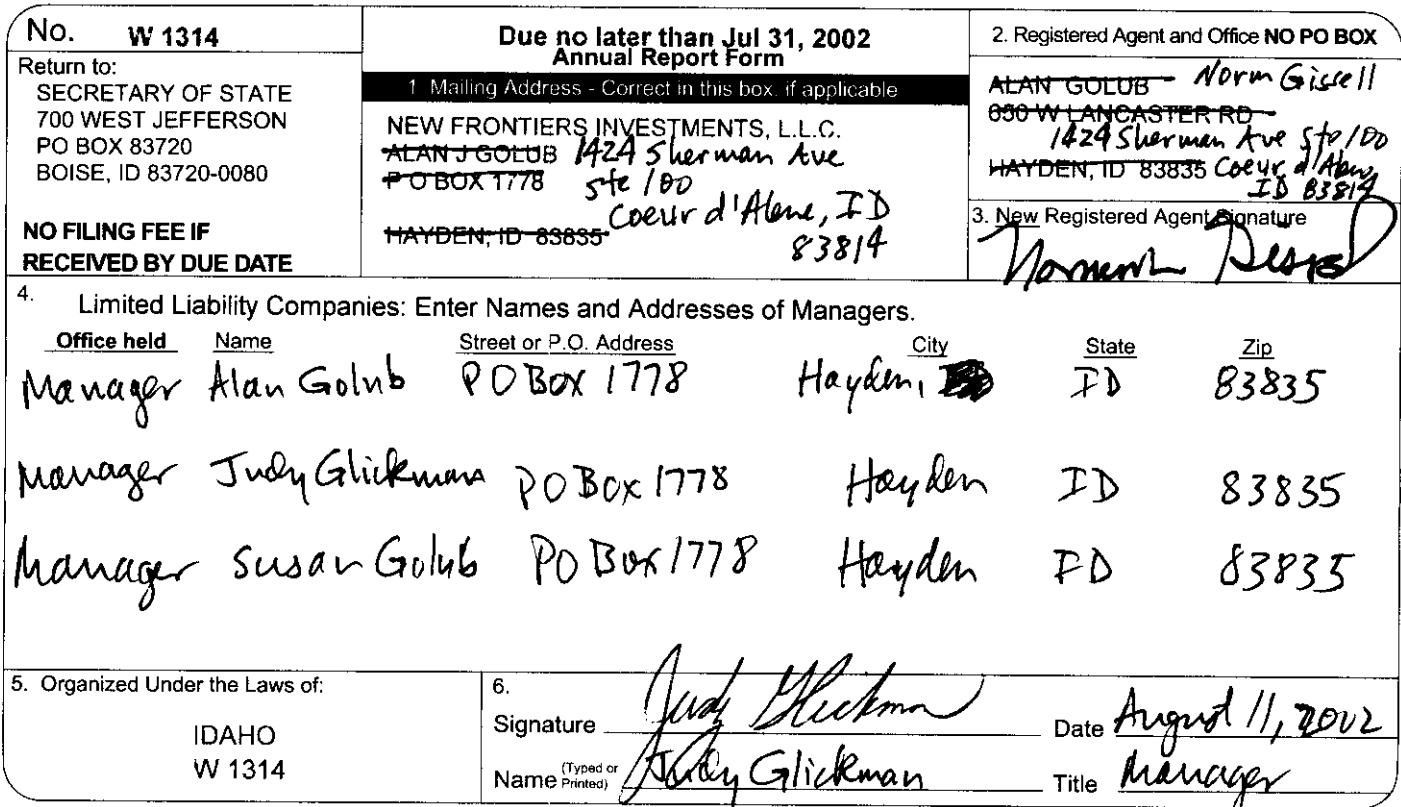 No. W 1314
Return to:
SECRETARY OF STATE
700 WEST JEFFERSON
PO BOX 83720
BOISE, ID 83720-0080
NO FILING FEE IF
RECEIVED BY DUE DATE
Due no later than Jul 31, 2002
Annual Report Form
1 Mailing Address - Correct in this box. if applicable
NEW FRONTIERS INVESTMENTS, L.L.C.
ALAN J GOLUB 1424 Sherman Ave
P O BOX 1778 Ste 100
Coeur d'Alene, ID
HAYDEN, ID 83835 83814
2. Registered Agent and Office NO PO BOX
ALAN GOLUB Norm Gissell
650 W LANCASTER RD
1424 Sherman Ave Ste 100
HAYDEN, ID 83835 Coeur d'Alene,
ID 83814
3. New Registered Agent Signature
4. Limited Liability Companies: Enter Names and Addresses of Managers.
Office held Name Street or P.O. Address City State Zip
Manager Alan Golub PO Box 1778 Hayden, ID 83835
Manager Judy Glickman PO Box 1778 Hayden ID 83835
Manager Susan Golub PO Box 1778 Hayden ID 83835
5. Organized Under the Laws of:
IDAHO
W 1314
6.
Signature Judy Glickman Date August 11, 2002
Name (Typed or Printed) Judy Glickman Title Manager